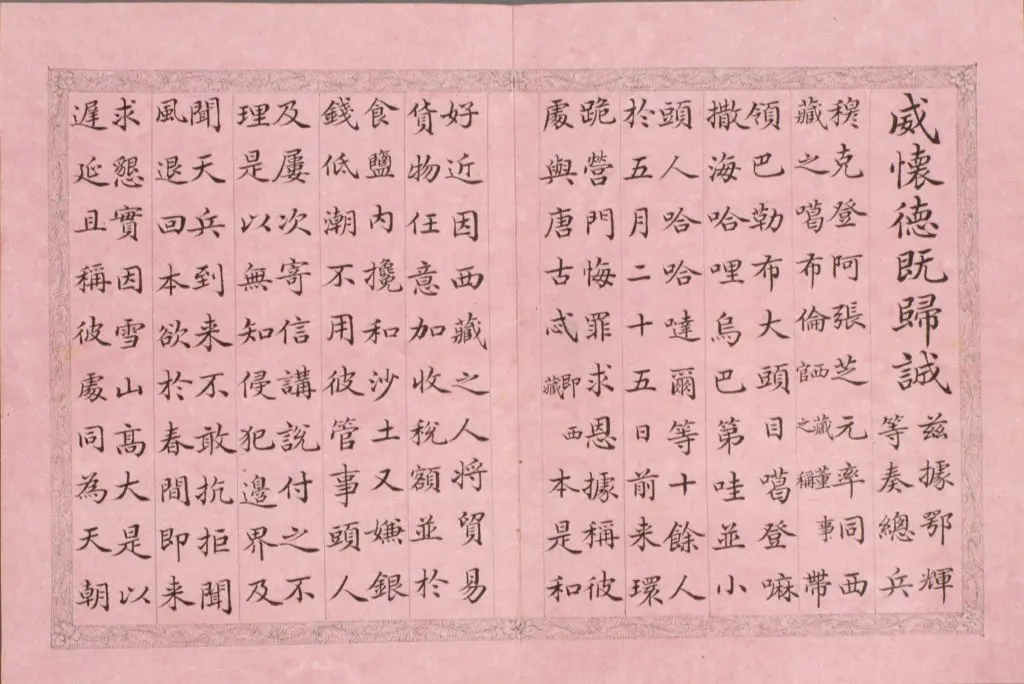 威懷德既歸誠
茲據鄂輝
等奏總兵
穆克登阿張芝元率同西
藏之噶布倫西藏董事官之稱帶
領巴勒布大頭目噶登嘛
撒海哈哩烏巴第哇並小
頭人哈哈噠爾等十餘人
於五月二十五日前来環
跪營門悔罪求恩據稱彼
處與唐古忒即西藏本是和
好近因西藏之人將貿易
貨物任意加收稅額並於
食鹽內攙和沙土又嫌銀
錢低潮不用彼管事頭人
及屢次寄信講說付之不
理是以無知侵犯邊界及
聞天兵到来不敢抗拒聞
風退回本欲於春間即来
求懇實因雪山高大是以
遲延且稱彼處同為天朝